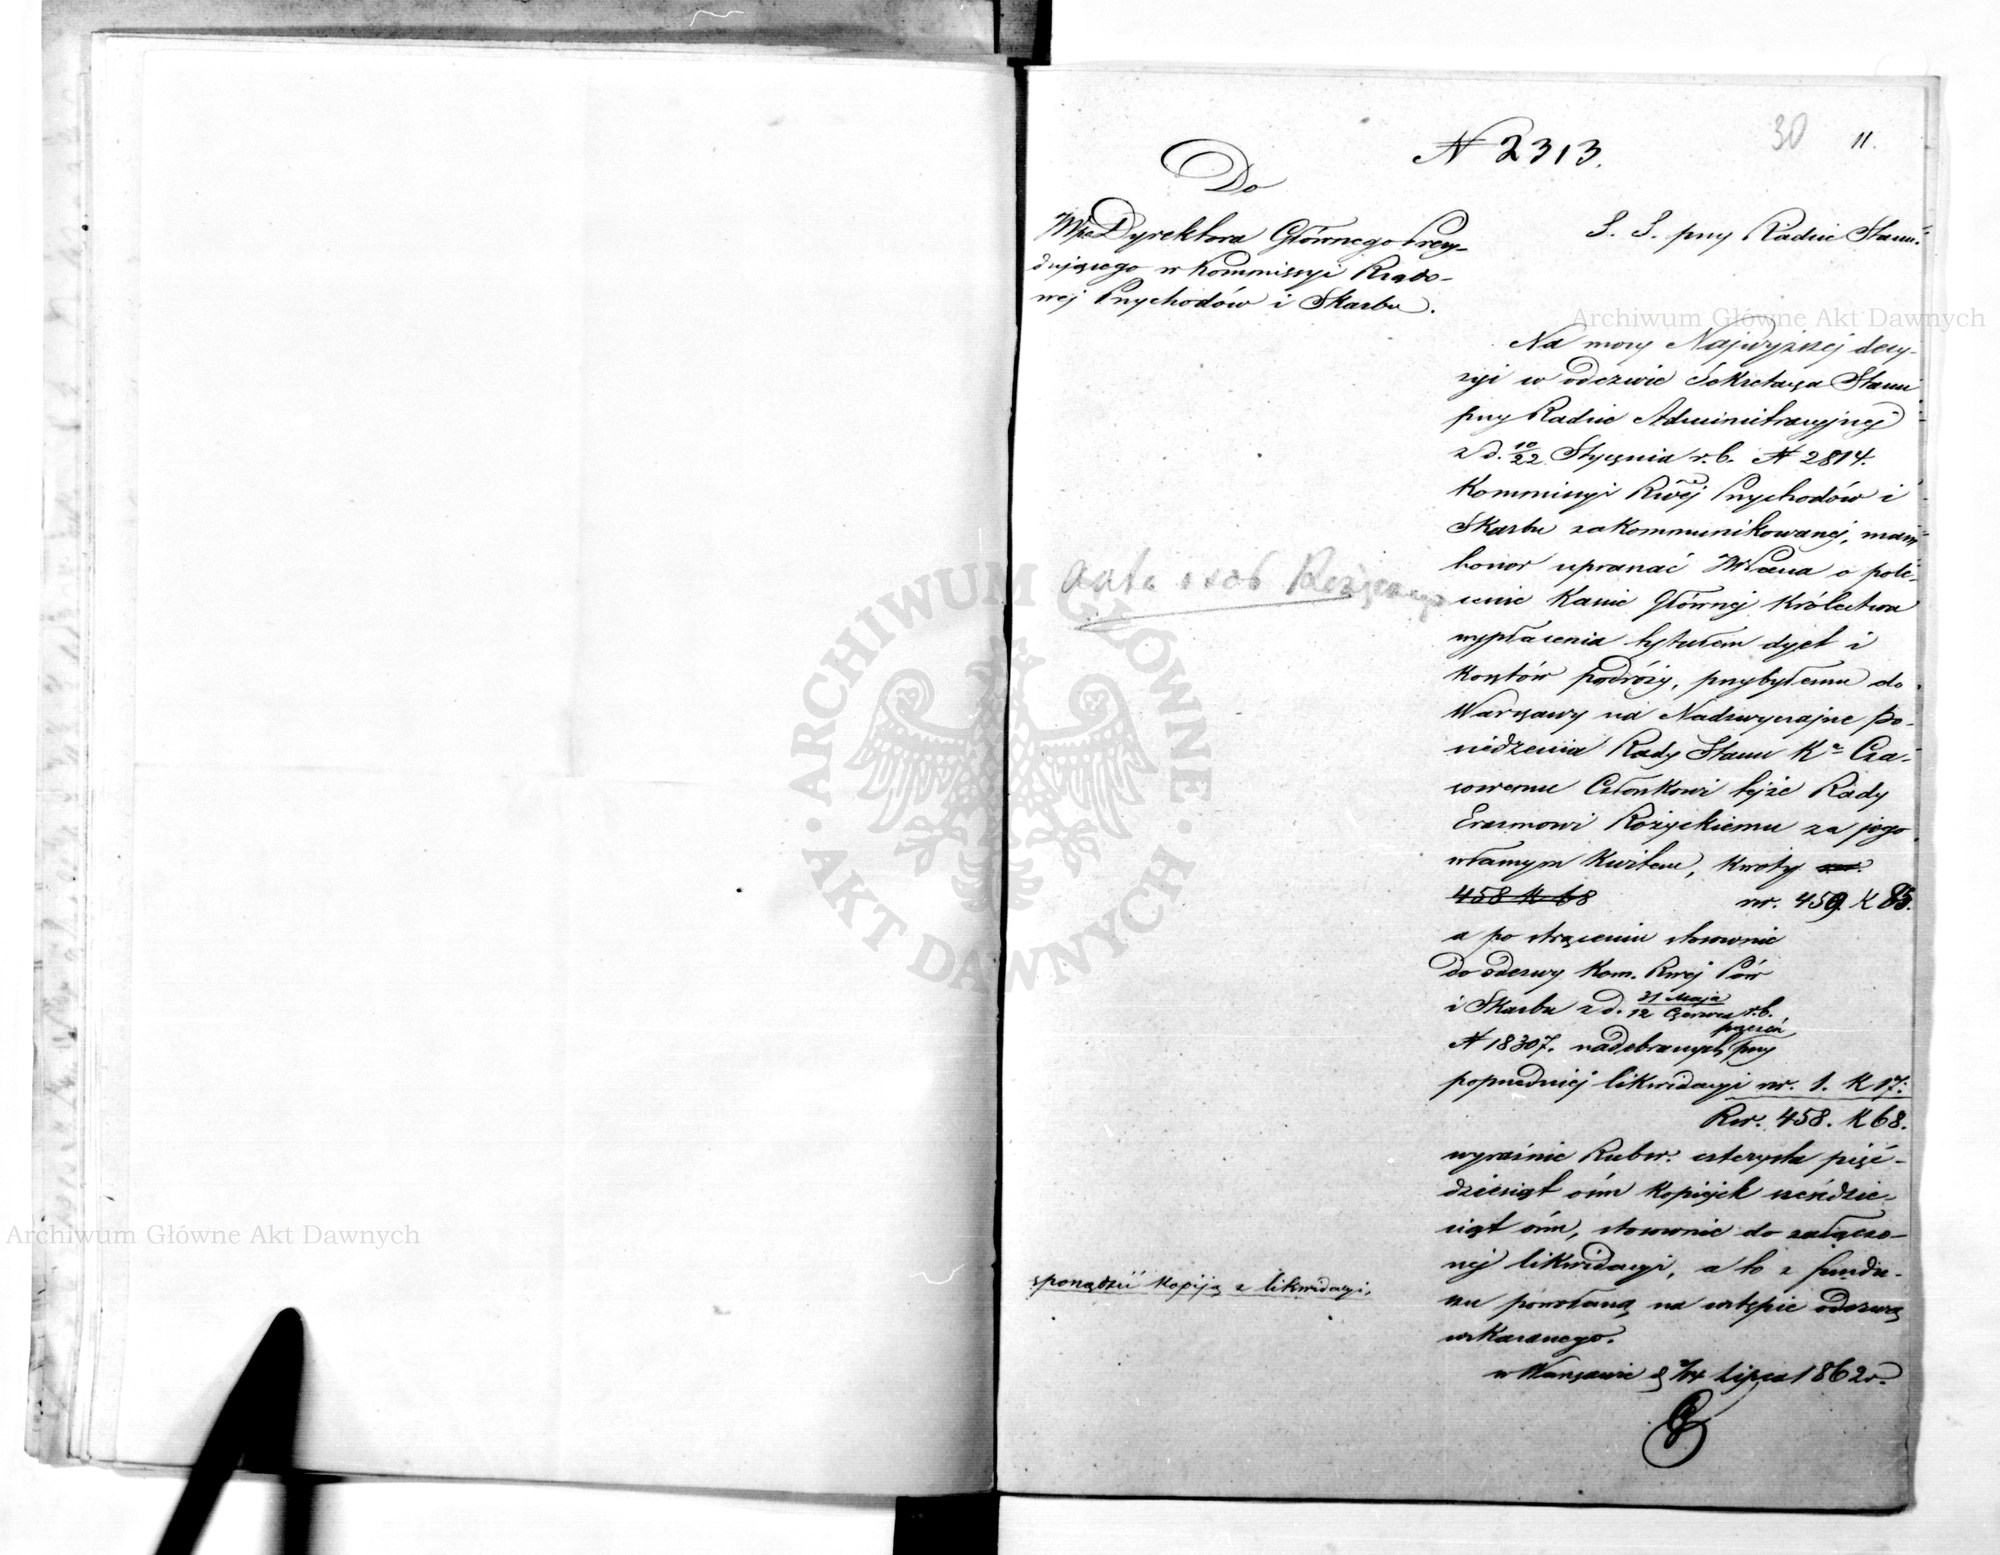 30 11.
N 2313.
Do
JWgo Dyrektora Głównego Prezy-
dującego w Kommissyi Rządo-
wej Przychodów i Skarbu.
S. S. przy Radzie Stanu.
Archiwum Główne Akt Dawnych
Na mocy Najwyższej decy-
zyi w odezwie Sekretarza Stanu
przy Radzie Administracyjnej
z d. 10/22 Stycznia r. b. N 2814.
Kommissyi Rwéj Przychodów i
Skarbu zakommunikowanej, mam
honor upraszać JWPana o pole-
cenie Kassie Głównej Królestwa
wypłacenia tytułem dyet i
kosztów podróży, przybyłemu do
Warszawy na Nadzwyczajne Po-
siedzenia Rady Stanu Kr. Cza-
sowemu Członkowi tejże Rady
Erazmowi Różyckiemu za jego
własnym Kwitem, kwoty rsr.
458 K 68 rsr. 459. K 85.
a po strąceniu stosownie
do odezwy Kom. Rwej Pów
i Skarbu z d. 31 Maja/12 Czerwca r. b.
N 18307. nadebranych przezeń przy
poprzedniej likwidacyi rsr. 1. K 17.
Rsr. 458. K 68.
wyraźnie Rubsr. czterysta pięć-
dziesiąt óśm kopiejek sześćdzie-
siąt óśm, stosownie do załączo-
nej likwidacyi, a to z fundu-
szu powołaną na wstępie odezwą
wskazanego.
w Warszawie d. 2/14 Lipca 1862 r.
Akta osob Różyckiego
sporządzić kopiją z likwidacyi.
ARCHIWUM GŁÓWNE · AKT DAWNYCH ·
Archiwum Główne Akt Dawnych